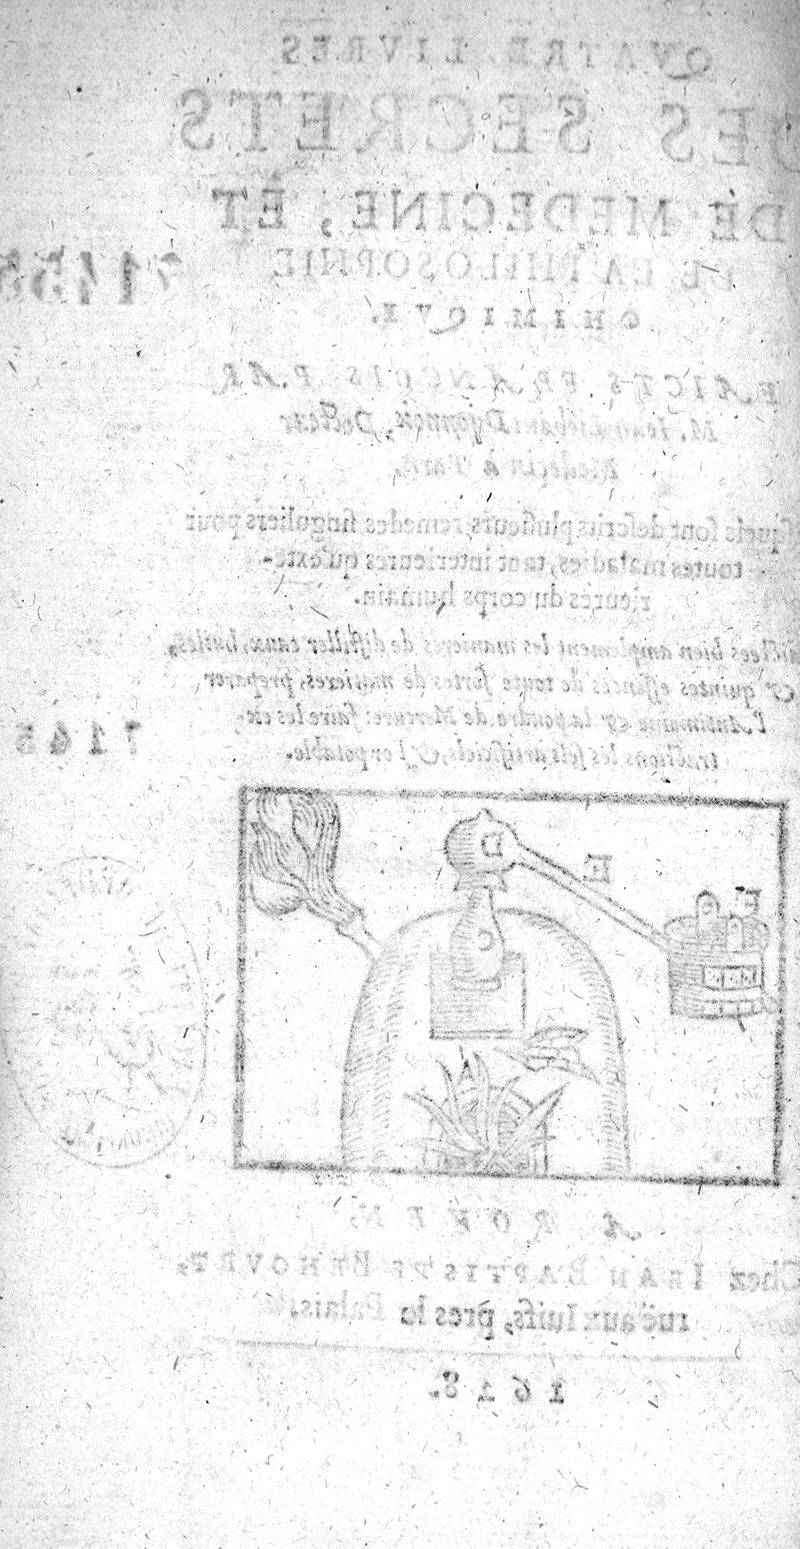 QVATRE LIVRES
DES SECRETS
DE MEDECINE, ET
DE LA PHILOSOPHIE
CHIMIQVE.
FAICTS FRANÇOIS PAR
M. Iean Liebaut Dijonnois, Docteur
Medecin à Paris.
squels sont descrits plusieurs remedes singuliers pour
toutes maladies, tant interieures qu'exte-
rieures du corps humain.
bien amplement les manieres de distiller eaux, huiles,
& quintes essences de toute sortes de matieres, preparer
l'Antimoine & la poudre de Mercure: faire les ex-
tractions les sels artificiels, & l'or potable.
7145
7145
D
E
C
F
A ROVEN,
Chez IEAN BAPTISTE BEHOVRT,
ruë aux Iuifs, pres le Palais.
1618.